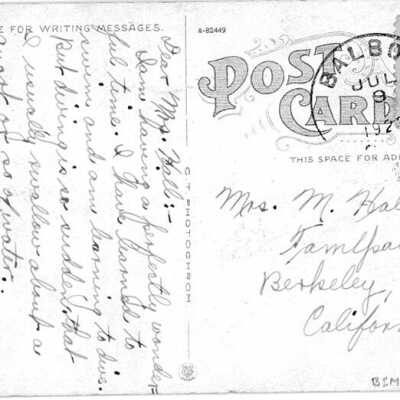 E FOR WRITING MESSAGES.
A-82449
POST
CARD
BALBO
JUL
9
192
THIS SPACE FOR ADD
C.T. PHOTOCHROM
Dear Mrs. Hall:-
I am having a perfectly wonder-
ful time. I have learned to
swim and am learning to dive.
But diving is so sudden that
I usually swallow about a
quart or so of water.
Mrs. M. Hal
Berkeley,
Califor